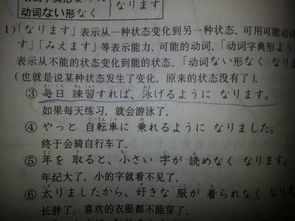 动词ない形なく
1)「なります」表示从一种状态变化到另一种状态,可用可能动
す」「みえます」等表示能力、可能的动词。「动词字典形よう
表示从不能的状态变化到能的状态。「动词ない形なく なりま
(也就是说某种状态发生了变化,原来的状态没有了)。
③ 毎日 練習すれば、泳げるように なります。
如果每天练习,就会游泳了.
④ やっと 自転車に 乗れるように なりました。
终于会骑自行车了.
⑤ 年を 取ると、小さい 字が 読めなく なります
年纪大了,小的字就看不见了.
⑥ 太りましたから、好きな 服が 着られなく なり
长胖了,喜欢的衣服都不能穿了.